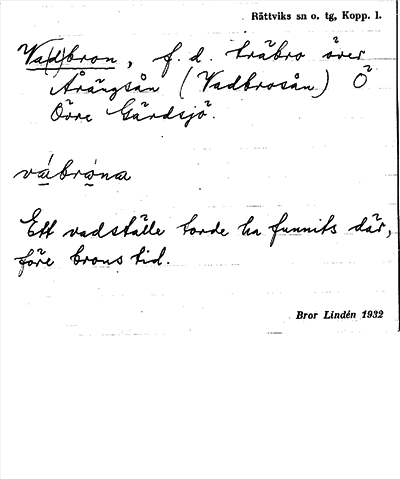 Rättviks sn o. tg, Kopp. l.
Va(d)bron, f. d. träbro över
Årängsån (Vadbrosån) Ö
Övre Gärdsjö.
vábróna
Ett vadställe torde ha funnits där,
före brons tid.
Bror Lindén 1932